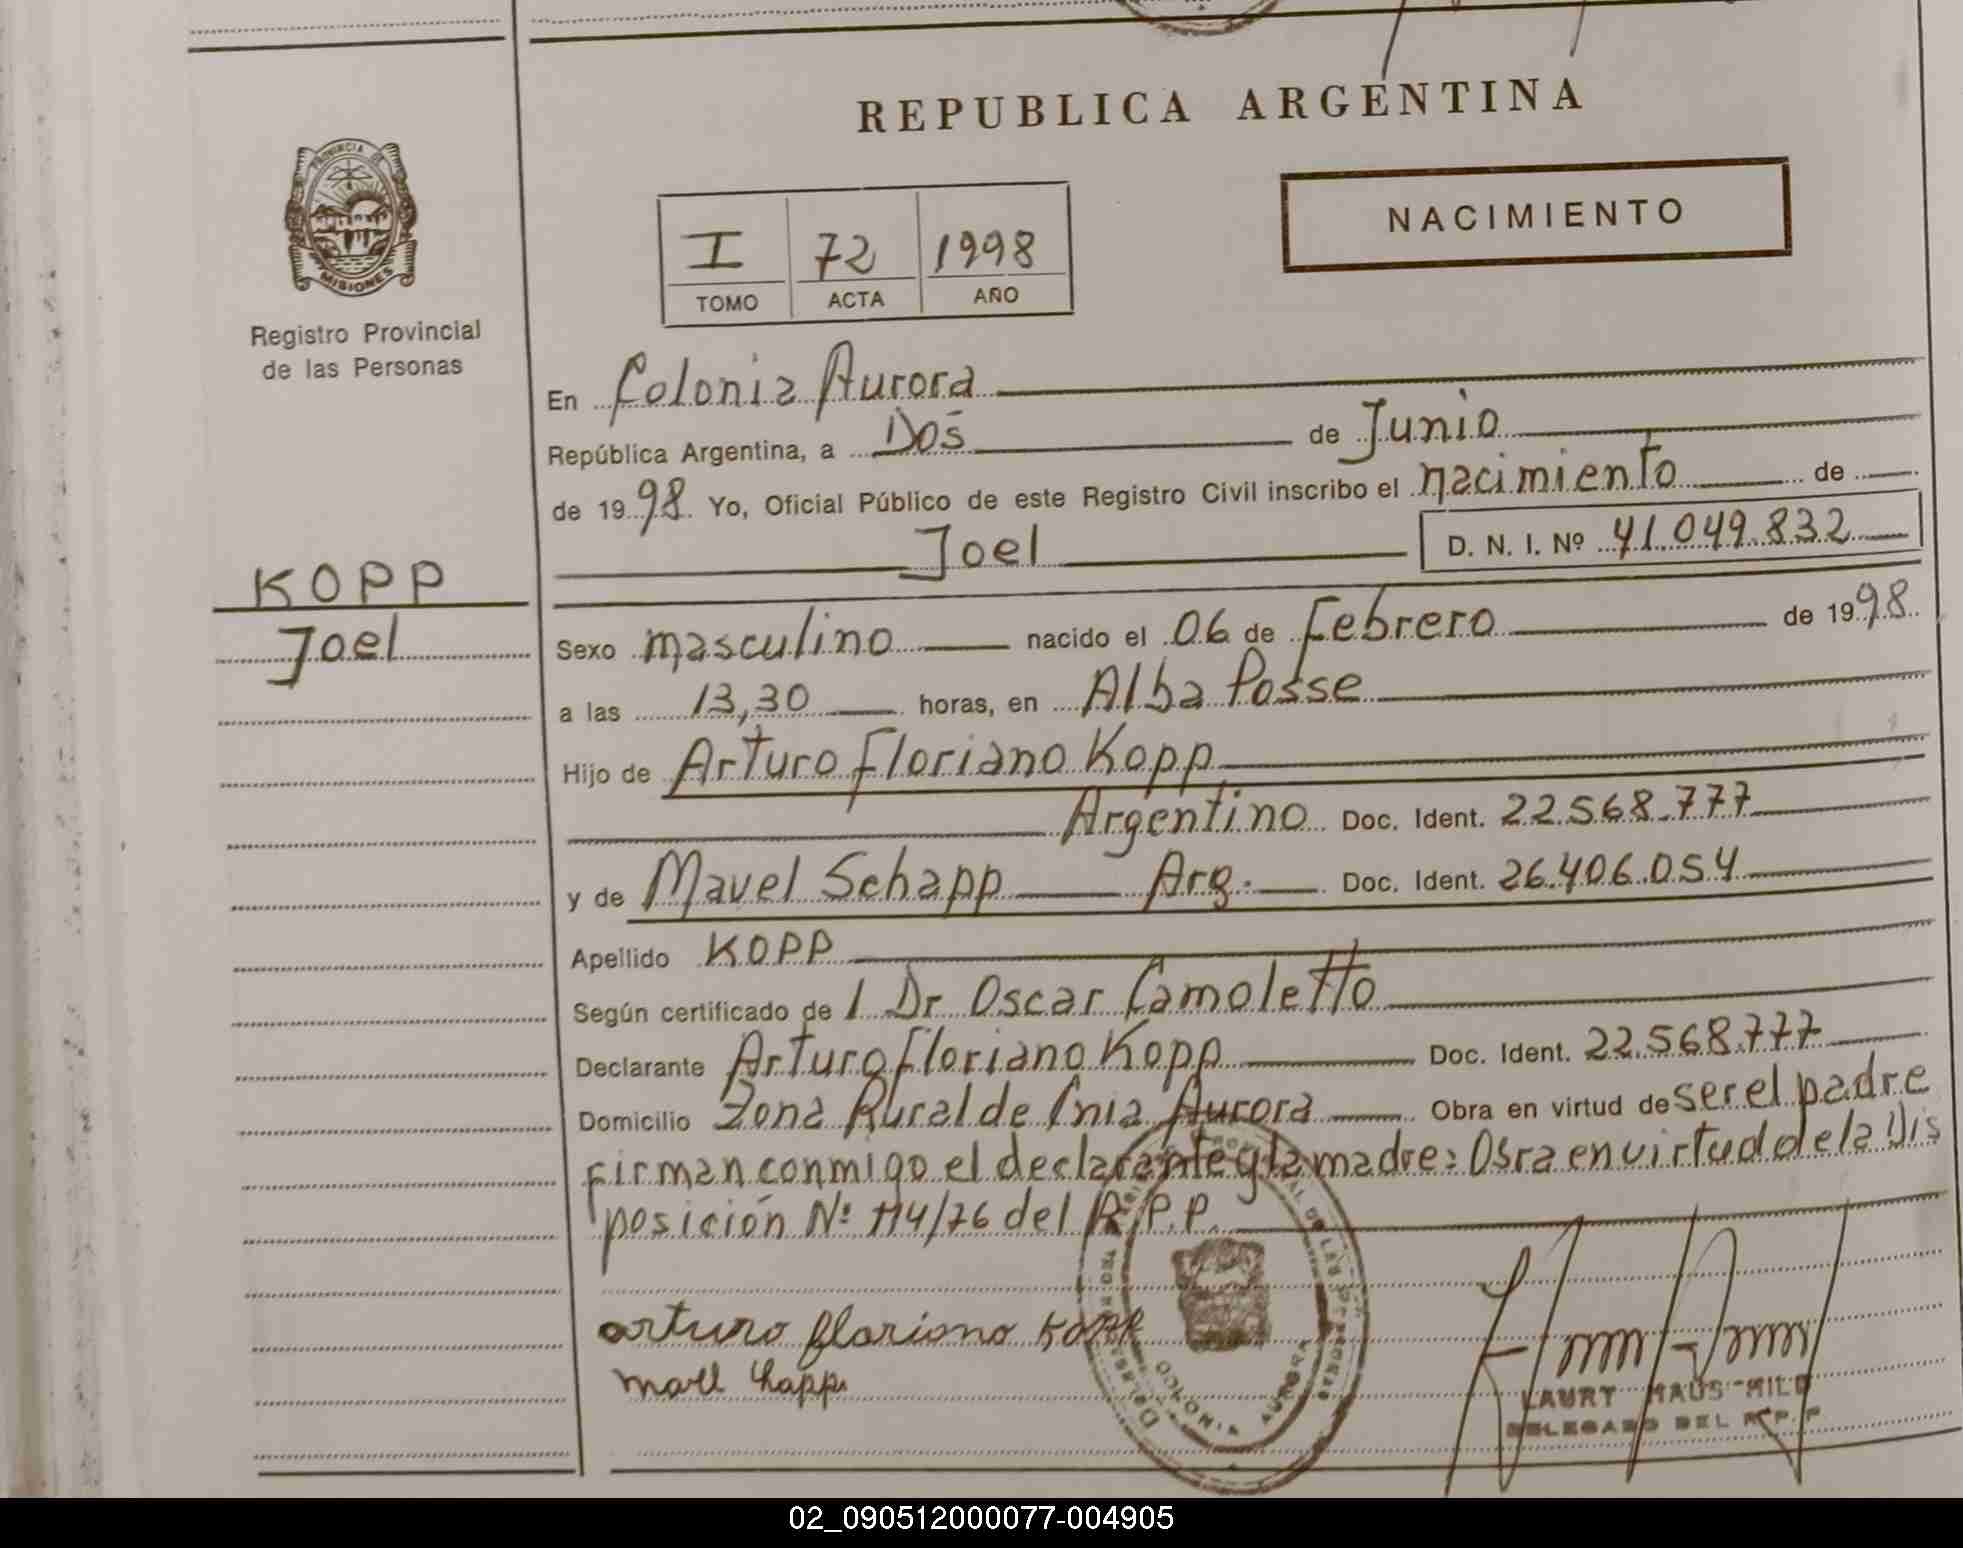 REPUBLICA ARGENTINA
NACIMIENTO
PROVINCIA DE
MISIONES
Registro Provincial
de las Personas
I 72 1998
TOMO ACTA AÑO
En Colonia Aurora
República Argentina, a Dos de Junio
de 1998 Yo, Oficial Público de este Registro Civil inscribo el nacimiento de
Joel D. N. I. Nº 41.049.832
KOPP
Joel
Sexo masculino nacido el 06 de Febrero de 1998
a las 13,30 horas, en Alba Posse
Hijo de Arturo Floriano Kopp
Argentino Doc. Ident. 22.568.777
y de Mavel Schapp Arg. Doc. Ident. 26.406.054
Apellido KOPP
Según certificado de l Dr Oscar Camoletto
Declarante Arturo Floriano Kopp Doc. Ident. 22.568.777
Domicilio Zona Rural de Cnia Aurora Obra en virtud de ser el padre
firman conmigo el declarante y la madre: Obra en virtud de la Dis
posición Nº 114/76 del R.P.P.
arturo floriano Kopp
DELEGADO DEL R.P.P
02_090512000077-004905